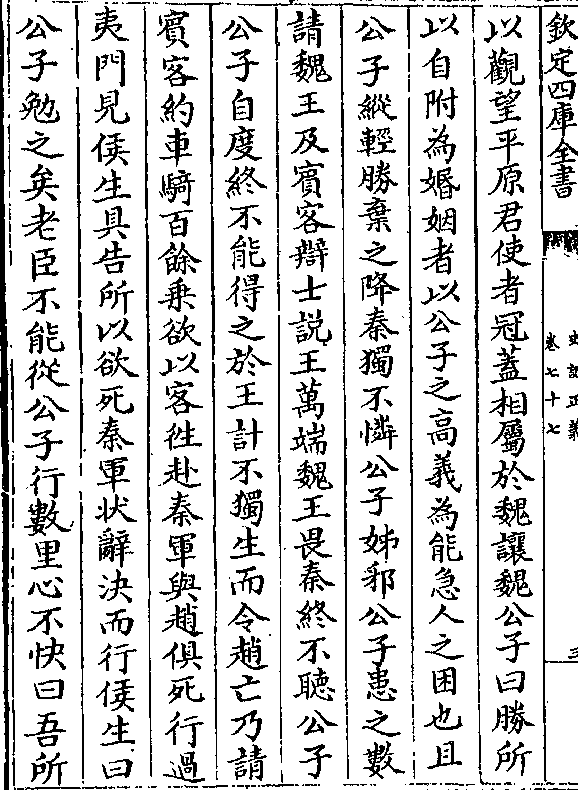 欽定四庫全書
史記正義
卷七十七
三
以觀望平原君使者冠蓋相屬於魏讓魏公子曰勝所
以自附為婚姻者以公子之高義為能急人之困也且
公子縱輕勝棄之降秦獨不憐公子姊邪公子患之數
請魏王及賓客辯士説王萬端魏王畏秦終不聽公子
公子自度終不能得之於王計不獨生而令趙亡乃請
賓客約車騎百餘乗欲以客徃赴秦軍與趙俱死行過
夷門見侯生具告所以欲死秦軍状辭決而行侯生曰
公子勉之矣老臣不能從公子行數里心不快曰吾所